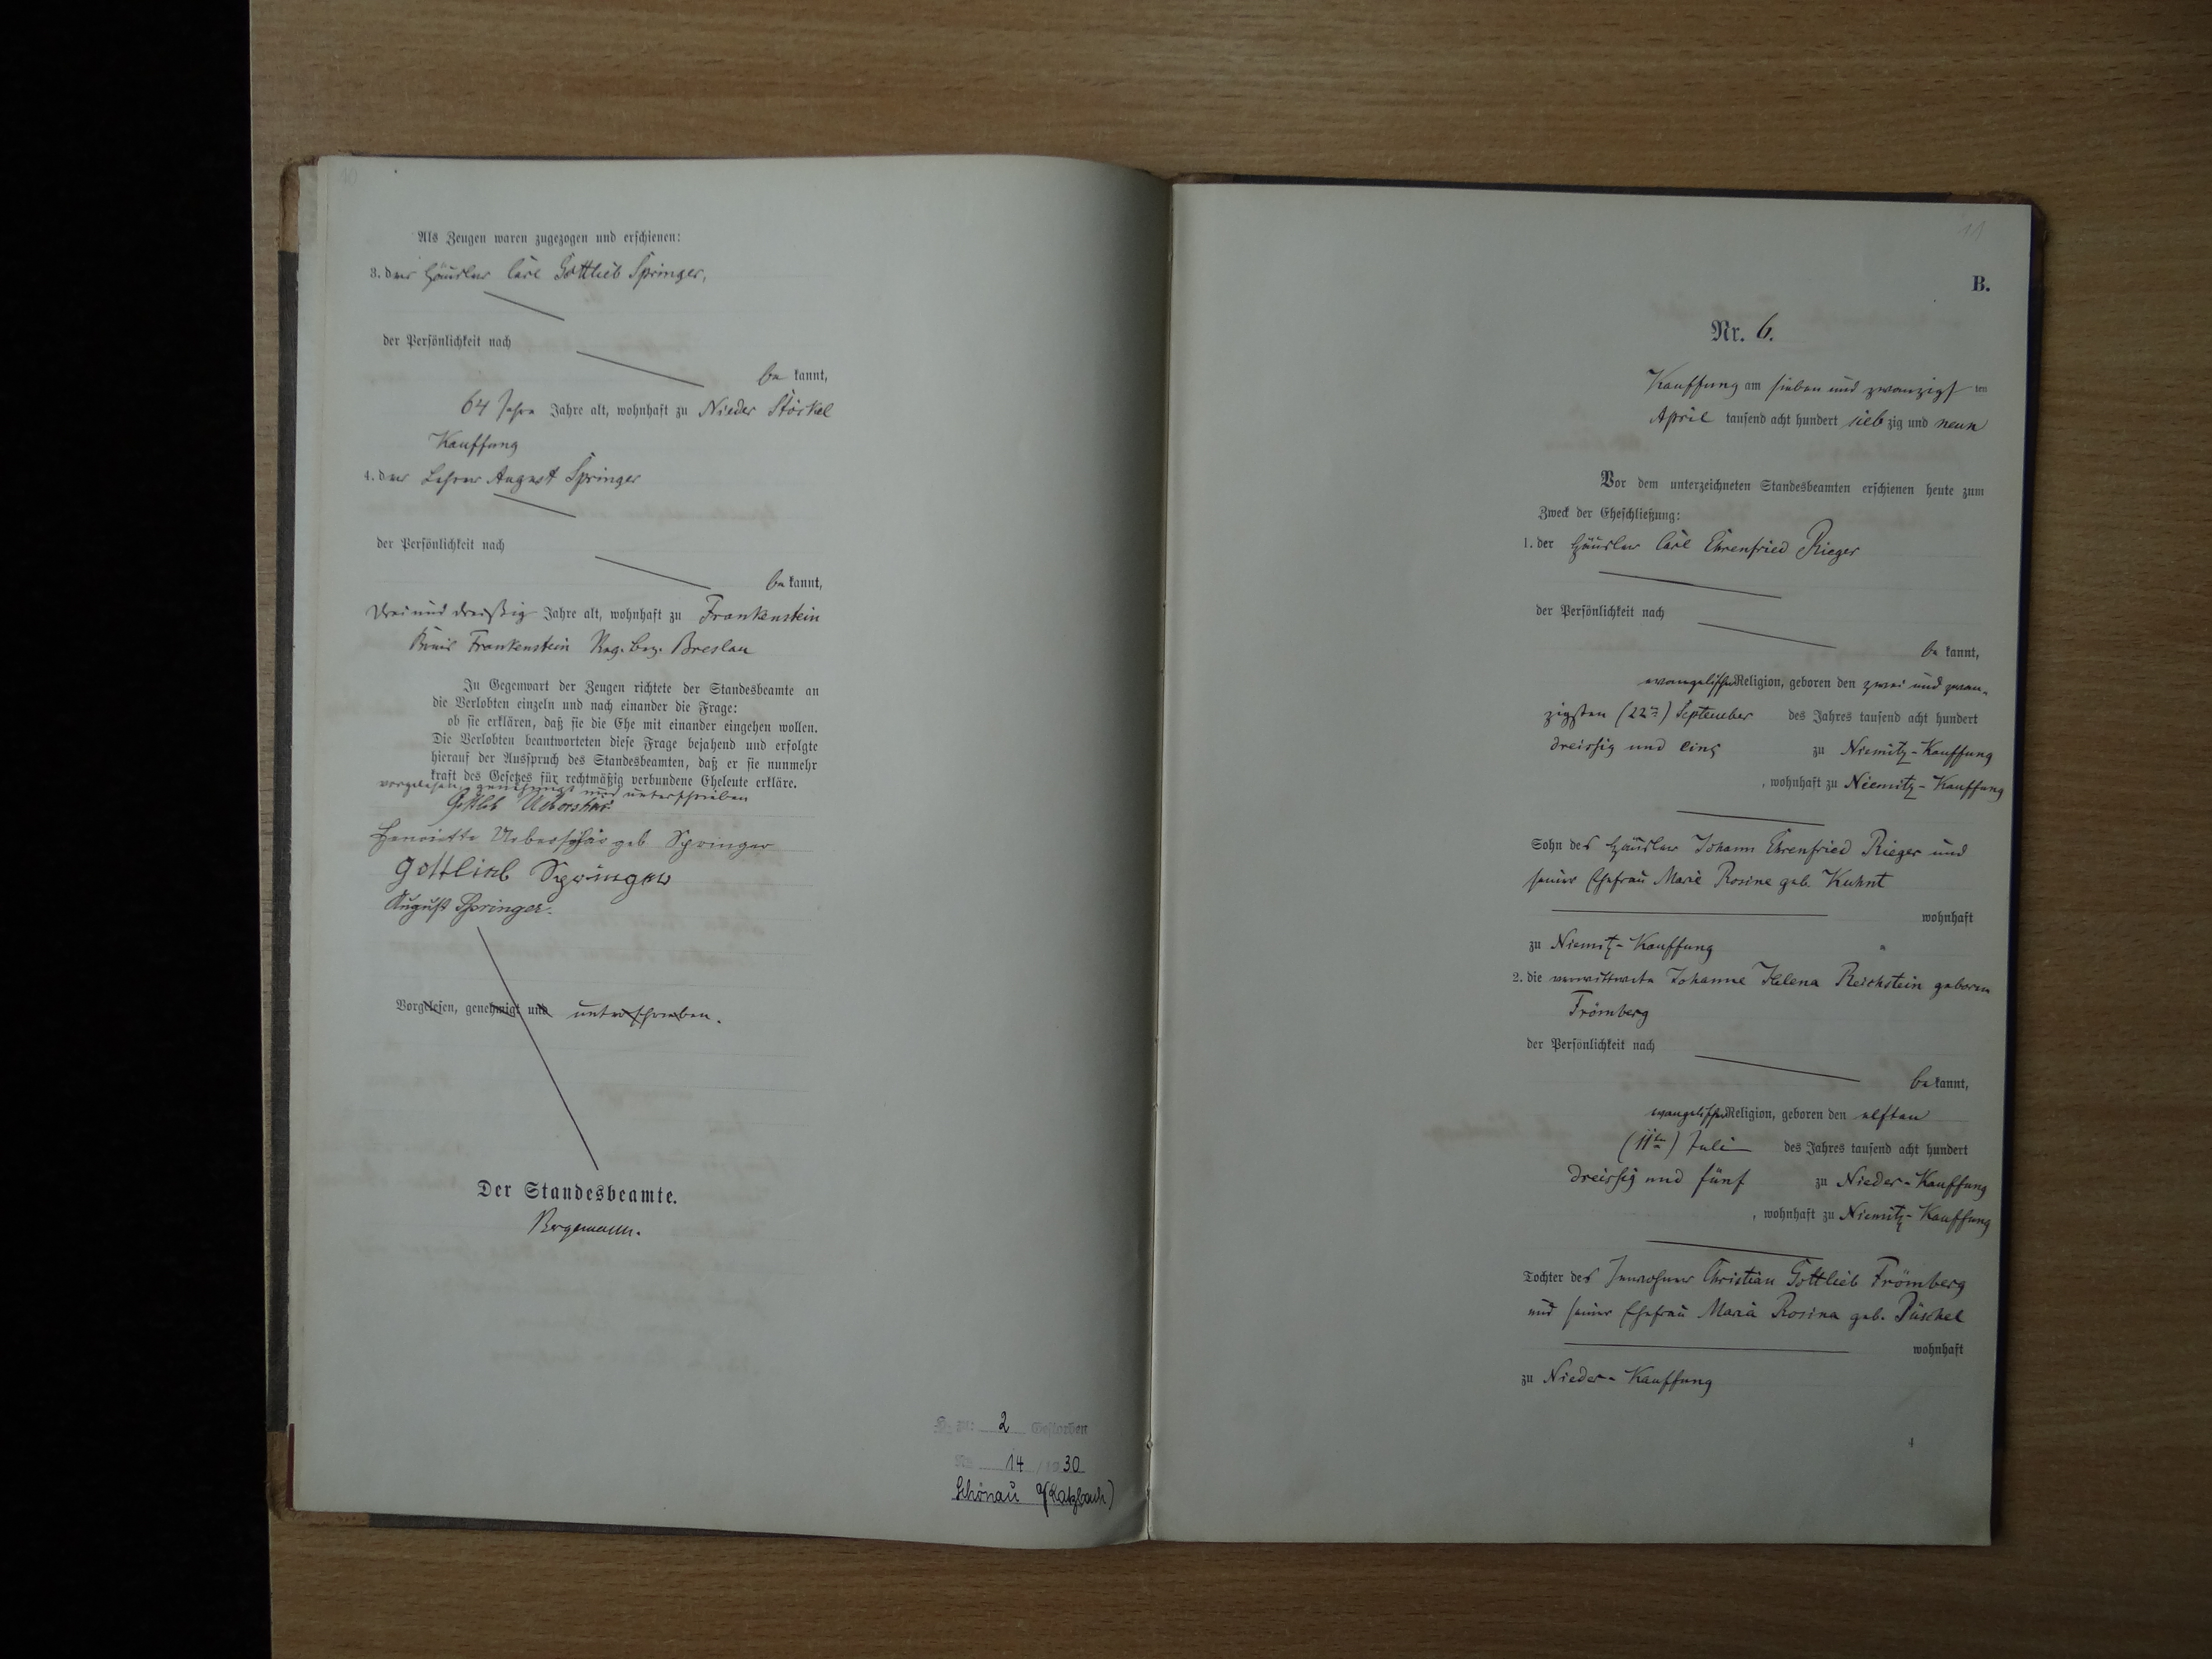 10
Als Zeugen waren zugezogen und erschienen:
3. der Häusler Carl Gottlieb Springer,
der Persönlichkeit nach
be kannt,
64 Jahre Jahre alt, wohnhaft zu Nieder Störkel
Kauffung
4. der Lehrer August Springer
der Persönlichkeit nach
be kannt,
drei und dreißig Jahre alt, wohnhaft zu Frankenstein
Kreis Frankenstein Reg. bez. Breslau
In Gegenwart der Zeugen richtete der Standesbeamte an
die Verlobten einzeln und nach einander die Frage:
ob sie erklären, daß sie die Ehe mit einander eingehen wollen.
Die Verlobten beantworteten diese Frage bejahend und erfolgte
hierauf der Ausspruch des Standesbeamten, daß er sie nunmehr
kraft des Gesetzes für rechtmäßig verbundene Eheleute erkläre.
vorgelesen, genehmigt und unterschrieben
Gottlieb Ueberschär
Henriette Ueberschär geb Springer
Gottlieb Springer
August Springer.
Vorgelesen, genehmigt und unterschrieben.
Der Standesbeamte.
Bergemann.
H. zu: 2 Gestorben
Nr. 14 / 1930
Schönau a/(Katzbach)
11
B.
Nr. 6.
Kauffung am sieben und zwanzigs ten
April tausend acht hundert sieb zig und neun
Vor dem unterzeichneten Standesbeamten erschienen heute zum
Zweck der Eheschließung:
1. der Häusler Carl Ehrenfried Rieger
der Persönlichkeit nach
be kannt,
evangelischer Religion, geboren den zwei und zwan-
zigsten (22ten) September des Jahres tausend acht hundert
dreissig und eins zu Niemitz-Kauffung
, wohnhaft zu Niemitz-Kauffung
Sohn des Häusler Johann Ehrenfried Rieger und
seiner Ehefrau Marie Rosine geb. Kuhnt
wohnhaft
zu Niemitz-Kauffung
2. die verwittwete Johanne Helena Reichstein geborene
Frömberg
der Persönlichkeit nach
be kannt,
evangelischer Religion, geboren den elften
(11ten) Juli des Jahres tausend acht hundert
dreissig und fünf zu Nieder-Kauffung
, wohnhaft zu Niemitz-Kauffung
Tochter des Inwohner Christian Gottlieb Frömberg
und seiner Ehefrau Maria Rosina geb. Püschel
wohnhaft
zu Nieder-Kauffung